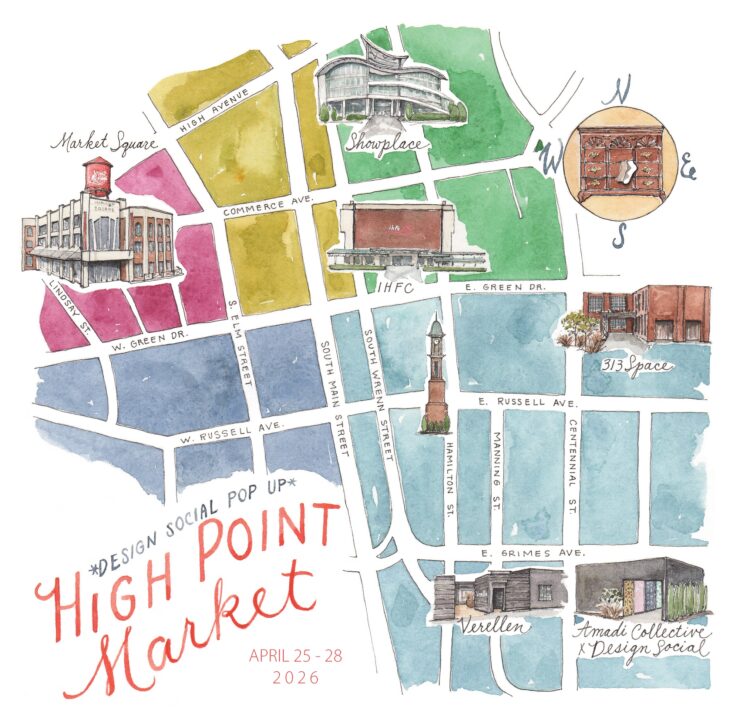 HIGH AVENUE
Market Square
Showplace
N
W
E
S
COMMERCE AVE.
IHFC
E. GREEN DR.
LINDSAY ST.
W. GREEN DR.
S. ELM STREET
SOUTH MAIN STREET
SOUTH WRENN STREET
313 Space
E. RUSSELL AVE.
W. RUSSELL AVE.
HAMILTON ST.
MANNING ST.
CENTENNIAL ST.
*DESIGN SOCIAL POP UP*
HIGH POINT
Market
APRIL 25 - 28
2026
E. GRIMES AVE.
Verellen
Amadi Collective
x Design Social